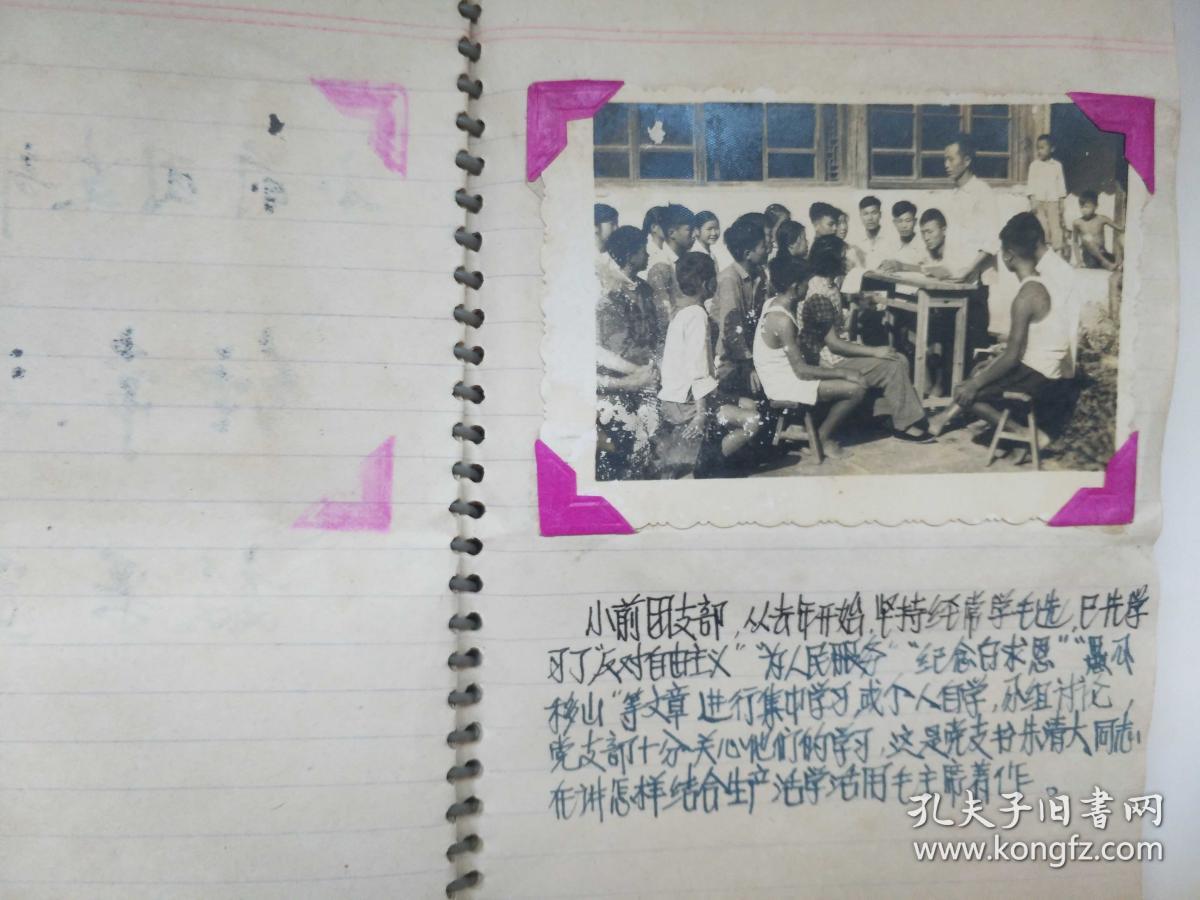 小前团支部,从去年开始,坚持经常学毛选,已先学
习了"反对自由主义""为人民服务""纪念白求恩""愚公
移山"等文章 进行集中学习,或个人自学,小组讨论,
党支部十分关心他们的学习,这是党支书朱清大同志
在讲怎样结合生产活学活用毛主席著作。
孔夫子旧书网
www.kongfz.com